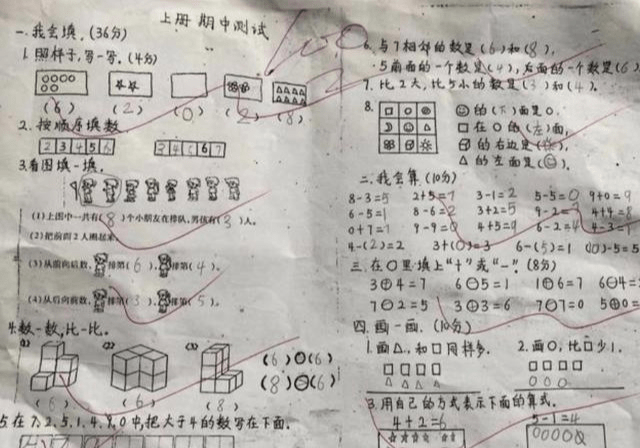 上册 期中测试
100
一.我会填.(36分)
1.照样子,写一写.(4分)
(6) (2) (0) (2) (8)
2.按顺序填数
2 3 4 5 6
3 4 5 6 7
3.看图填一填.
(1)上图中一共有(8)个小朋友在排队,男孩有(3)人。
(2)把前面2人圈起来
(3)从前向后数, 排第(6), 排第(4)。
(4)从后向前数, 排第(3), 排第(5)。
4.数一数,比一比。
(1) (2) (3)
(6)○(6)
(8)○(6)
(6) (6) (8)
5.在7、2、5、1、4、9、0中,把大于4的数写在下面.
6.与7相邻的数是(6)和(8),
5前面的一个数是(4),后面的一个数是(6)
7.比2大,比5小的数是(3)和(4).
8.
的(下)面是○.
□在○的(左)面,
的右边是
△的左面是
二.我会算.(10分)
8-3=5 2+5=7 3-1=2 5-5=0 9+0=9
6-5=1 8-6=2 3+2=5 9-2= 4+4=8
0+7=7 9-9=0 4+5=9 6-2=4 4-3=1
4-(2)=2 3+(0)=3 6-(5)=1 (10)-5=5
三.在○里填上"+"或"-".(8分)
3+4=7 6-5=1 1+6=7 6-4=
7-2=5 3+3=6 7-7=0 5 0=
四.画一画.(10分)
1.画△,和□同样多.
2.画○,比□少1.
3.用自己的方式表示下面的算式.
4+2=6 5-1=4